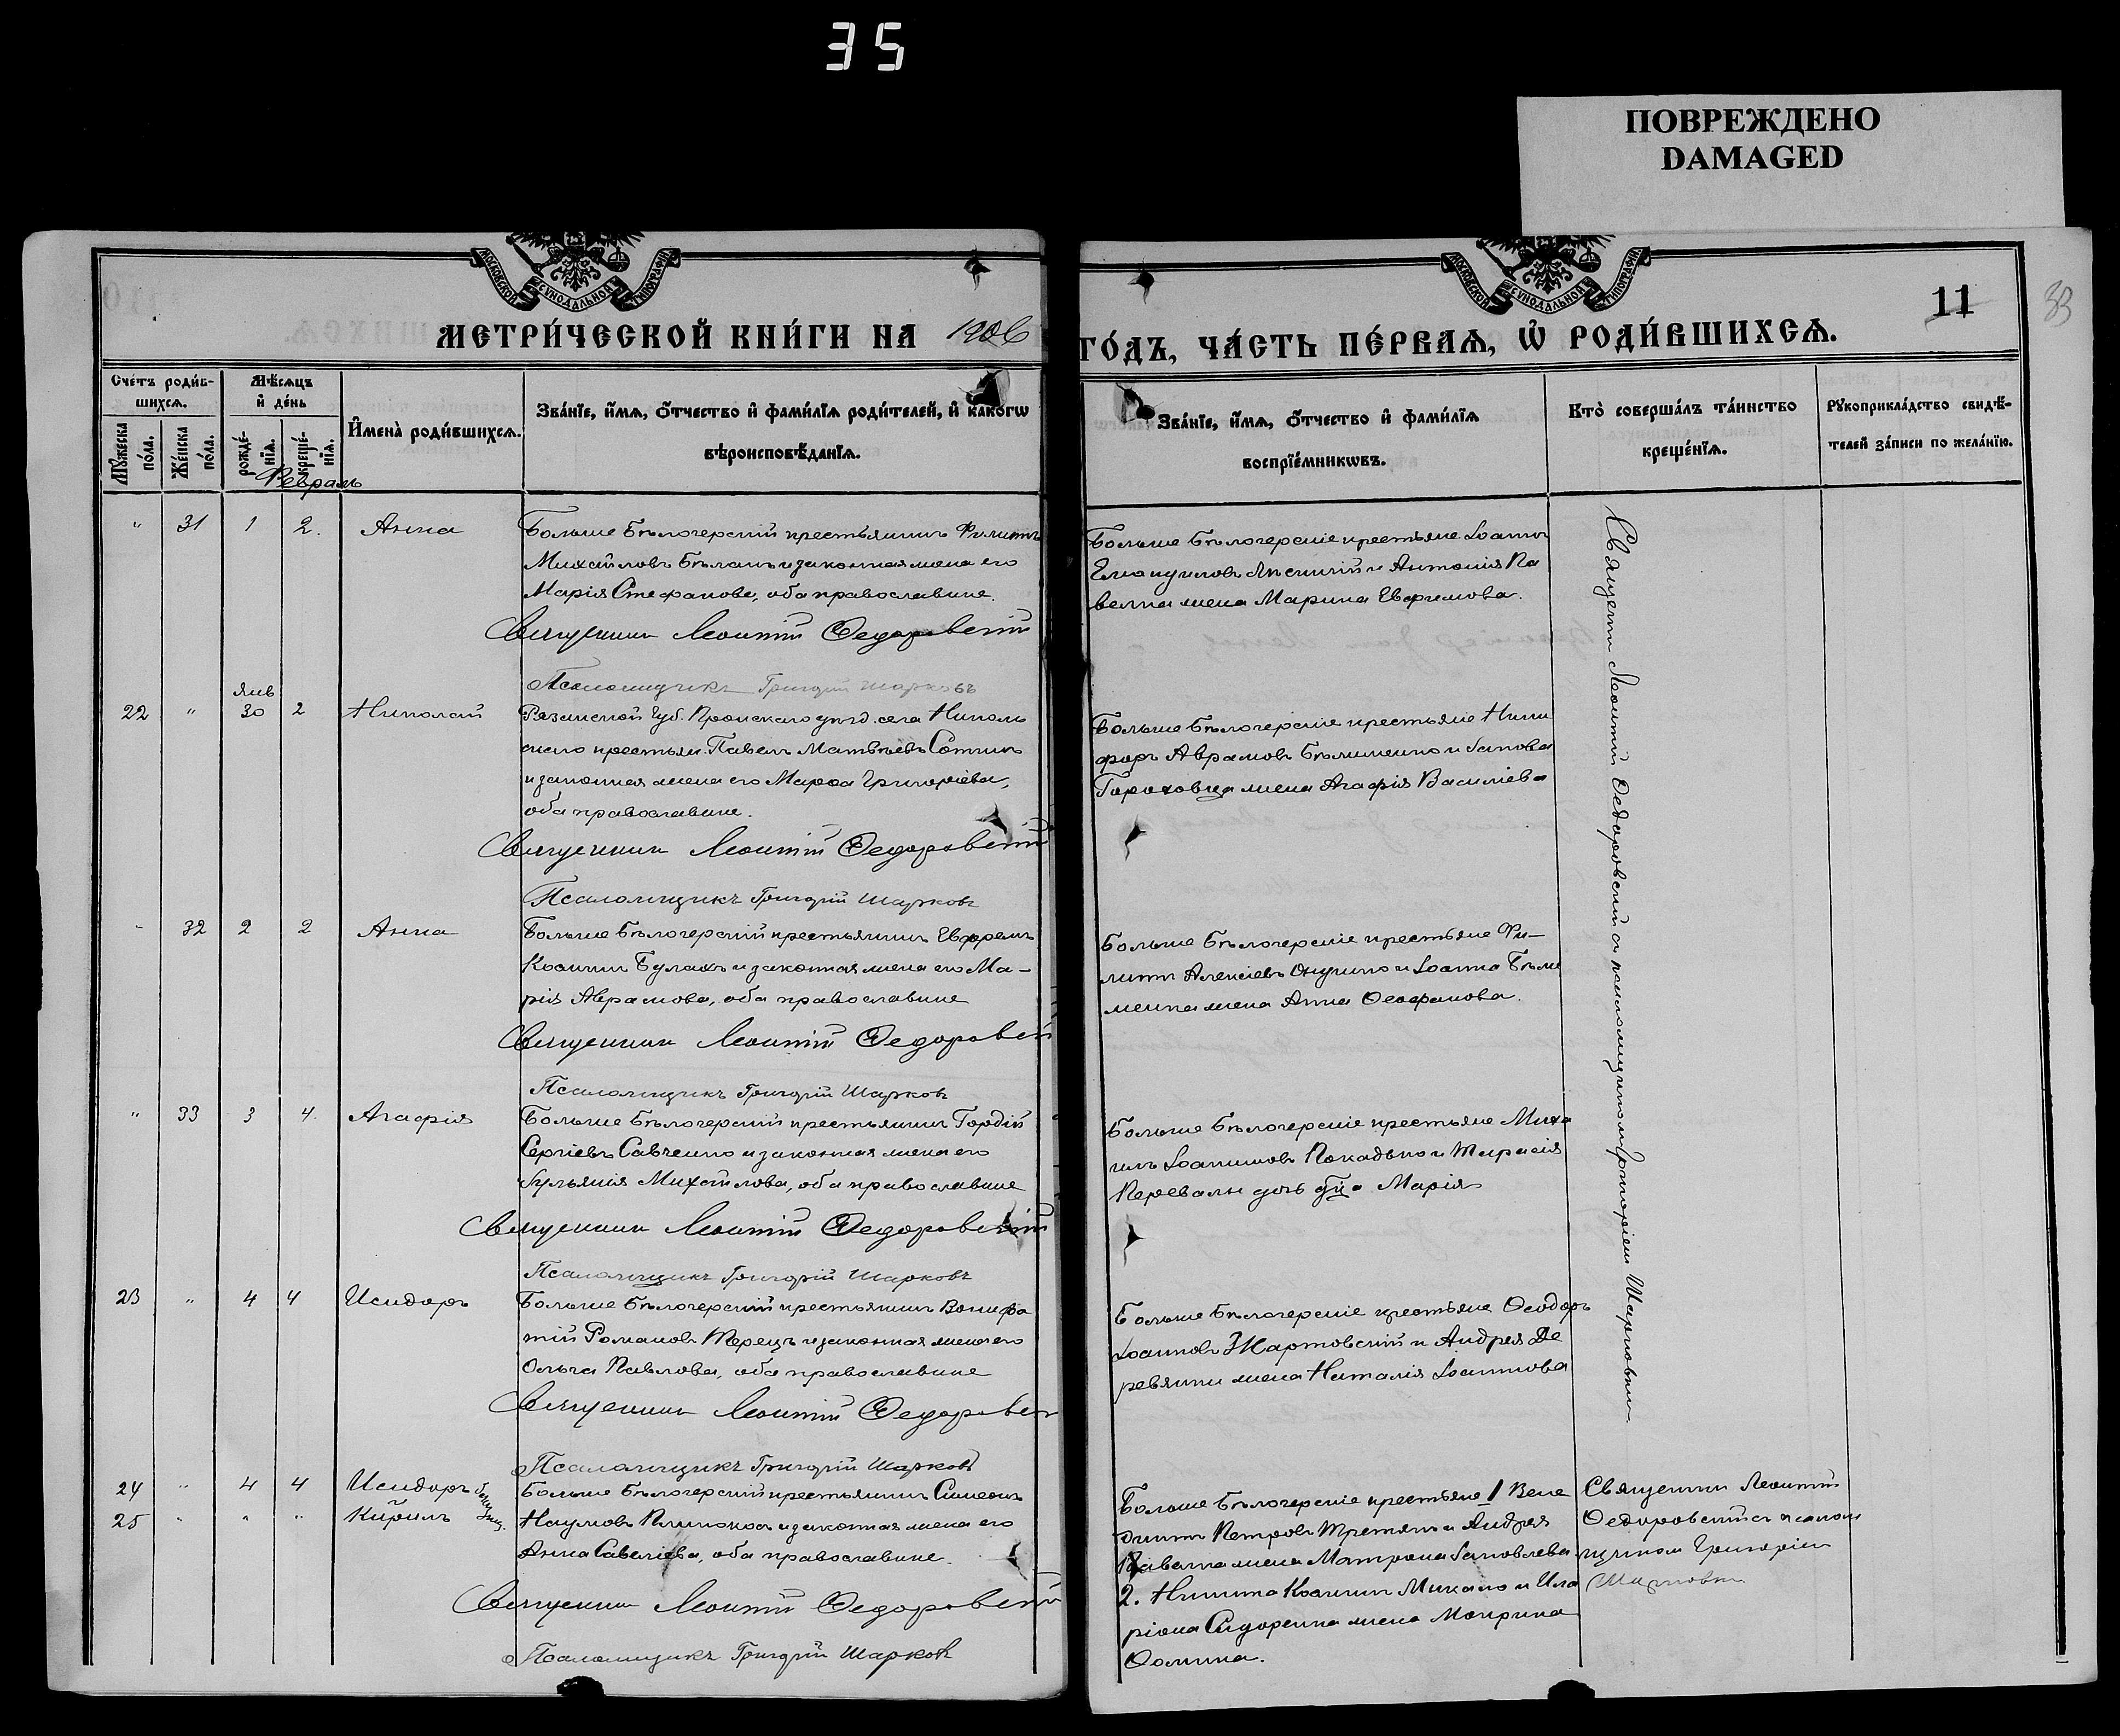 35
ПОВРЕЖДЕНО
DAMAGED
МОСКОВСКОЙ СѴНОДАЛЬНОЙ ТИПОГРАФІИ
МОСКОВСКОЙ СѴНОДАЛЬНОЙ ТИПОГРАФІИ
МЕТРИ́ЧЕСКОЙ КНИ́ГИ НА 1906
ГО́ДЪ, ЧА́СТЬ ПЕ́РВАѦ, Ѡ҆ РОДИ́ВШИХСѦ.
11
33
Сче́тъ роди́в-
шихсѧ.
Мꙋ́жеска по́ла.
Же́нска по́ла.
Мѣ́сѧцъ
и҆ де́нь
рожде́-
нїѧ.
креще́-
нїѧ.
И҆мена̀ роди́вшихсѧ.
Зва́нїе, и҆́мѧ, ѻ҆́тчество и҆ фами́лїѧ роди́телей, и҆ како́гѡ
вѣроисповѣ́данїѧ.
Зва́нїе, и҆́мѧ, ѻ҆́тчество и҆ фами́лїѧ
воспрїе́мникѡвъ.
Кто̀ соверша́лъ та́инство
креще́нїѧ.
Рꙋкоприкла́дство свидѣ́-
телей за́писи по жела́нїю.
Февраль
" 31 1 2. Анна
Больше Бѣлозерскій крестьянинъ Филиппъ
Михайловъ Бѣланъ и законная жена его
Марія Стефанова, оба православные.
Священникъ Леонтій Ѳедоровскій
Псаломщикъ Григорій Шарковъ
Больше Бѣлозерскіе крестьяне Іоаннъ
и Антонія Па
жена Марина Евфимова.
22 " Янв 30 2 Николай
Рязанской Губ. Пронскаго уѣзд. села Николь
скаго крестьян. Павелъ Матвѣевъ Сотинъ
и законная жена его Марѳа Григоріева,
оба православные.
Священникъ Леонтій Ѳедоровскій
Псаломщикъ Григорій Шарковъ
Больше Бѣлозерскіе крестьяне Ники
форъ Аврамовъ Бѣлименко и Іакова
Гороховца жена Агафія Василіева
" 32 2 2 Анна
Больше Бѣлозерскій крестьянинъ Евфремъ
Косминъ Булахъ и законная жена его Ма-
рія Аврамова, оба православные
Священникъ Леонтій Ѳедоровскій
Псаломщикъ Григорій Шарковъ
Больше Бѣлозерскіе крестьяне Фи-
липпъ Алексіевъ и Іоанна Бѣли
менка жена Анна Ѳеофанова.
" 33 3 4. Агафія
Больше Бѣлозерскій крестьянинъ Гордій
Сергіевъ Савченко и законная жена его
Іульянія Михайлова, оба православные
Священникъ Леонтій Ѳедоровскій
Псаломщикъ Григорій Шарковъ
Больше Бѣлозерскіе крестьяне Миха
илъ Іоанновъ Покадько и Тарасія
Перевалы дочь дца Марія
23 " 4 4 Исидоръ
Больше Бѣлозерскій крестьянинъ Вонифа
тій Романовъ Терецъ и законная жена его
Ольга Павлова, оба православные
Священникъ Леонтій Ѳедоровскій
Псаломщикъ Григорій Шарковъ
Больше Бѣлозерскіе крестьяне Ѳеодоръ
Іоанновъ Жартовскій и Андрея Де
ревянки жена Наталія Іоаннова
Священник Леонтій Ѳедоровскій с псаломщиком Григоріем Шарковым
24 " 4 4 Исидоръ близ
25 " " " Кирилъ нец.
Больше Бѣлозерскій крестьянинъ Симеонъ
Наумовъ и законная жена его
Анна Савеліева, оба православные.
Священникъ Леонтій Ѳедоровскій
Псаломщикъ Григорій Шарковъ
Больше Бѣлозерскіе крестьяне 1 Вене
диктъ Петровъ Третякъ и Андрея
жена Матрона Іаковлева
2. Никита Косминъ Микало и Ила
ріона Сидоренка жена Макрина
Ѳомина.
Священник Леонтій
Ѳедоровскій с псалом
щиком Григоріем
Шарковым